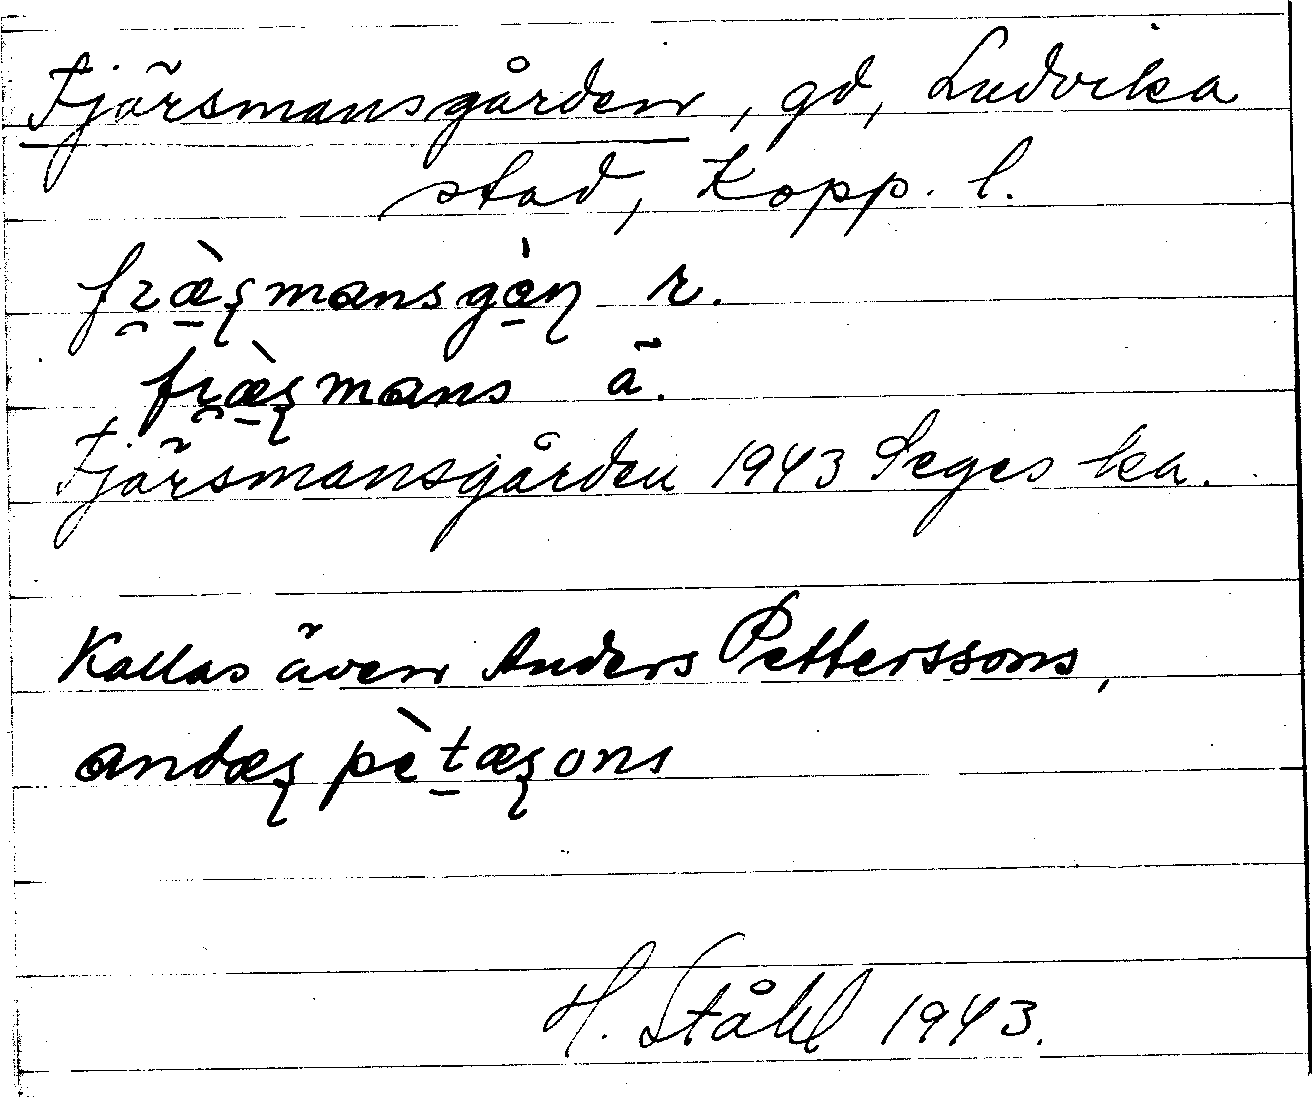 Fjärsmansgården, gd, Ludvika
stad, Kopp. l.
fi̯æ̀ʂmansgàɳ r.
fi̯æ̀ʂmans ä.
Fjärsmansgården 1943 Seges ka.
Kallas även Anders Petterssons,
andæʂ pètæʂons
H. Ståhl 1943.